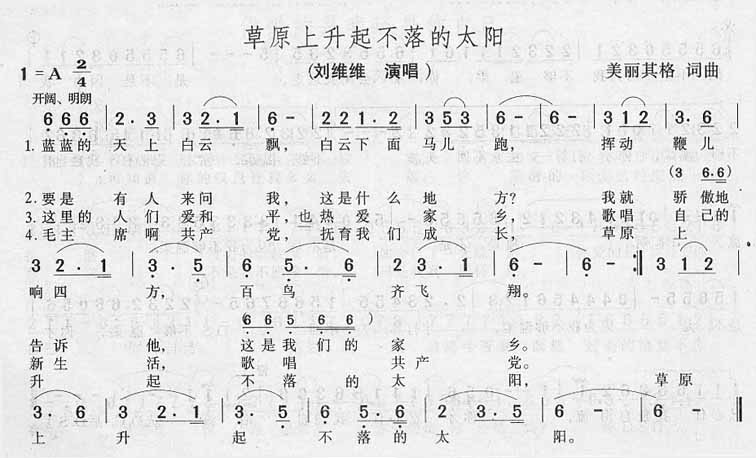 草原上升起不落的太阳
1=A 2/4 (刘维维 演唱) 美丽其格 词曲
开阔、明朗
6 6 6 | 2·3 | 3 2·1 | 6 - | 2 2 1 2 | 3 5 3 | 6 - | 3 1 2 | 3·6 |
1.蓝蓝的 天上 白云 飘, 白云下面 马儿 跑, 挥动 鞭儿
(3 6·6)
2.要是 有人 来问 我, 这是什么 地 方? 我就 骄傲地
3.这里的 人们 爱和 平,也热爱 家 乡, 歌唱 自己的
4.毛主 席啊 共产 党,抚育我们 成 长, 草原 上
3 2·1 | 3·5 | 6·5·6 | 3 2·1 | 6 - | 6 - :| 3 1 2 |
响四 方, 百鸟 齐飞 翔。
6 6 5 6 6 )
告诉 他, 这是我们的 家 乡。
新生 活, 歌唱 共产 党。
升 起 不落的 太 阳, 草原
3·6 | 3 2·1 | 3·5 | 6·5·6 | 2 3·5 | 6 - | 6 - ‖
上 升 起 不落的 太 阳。